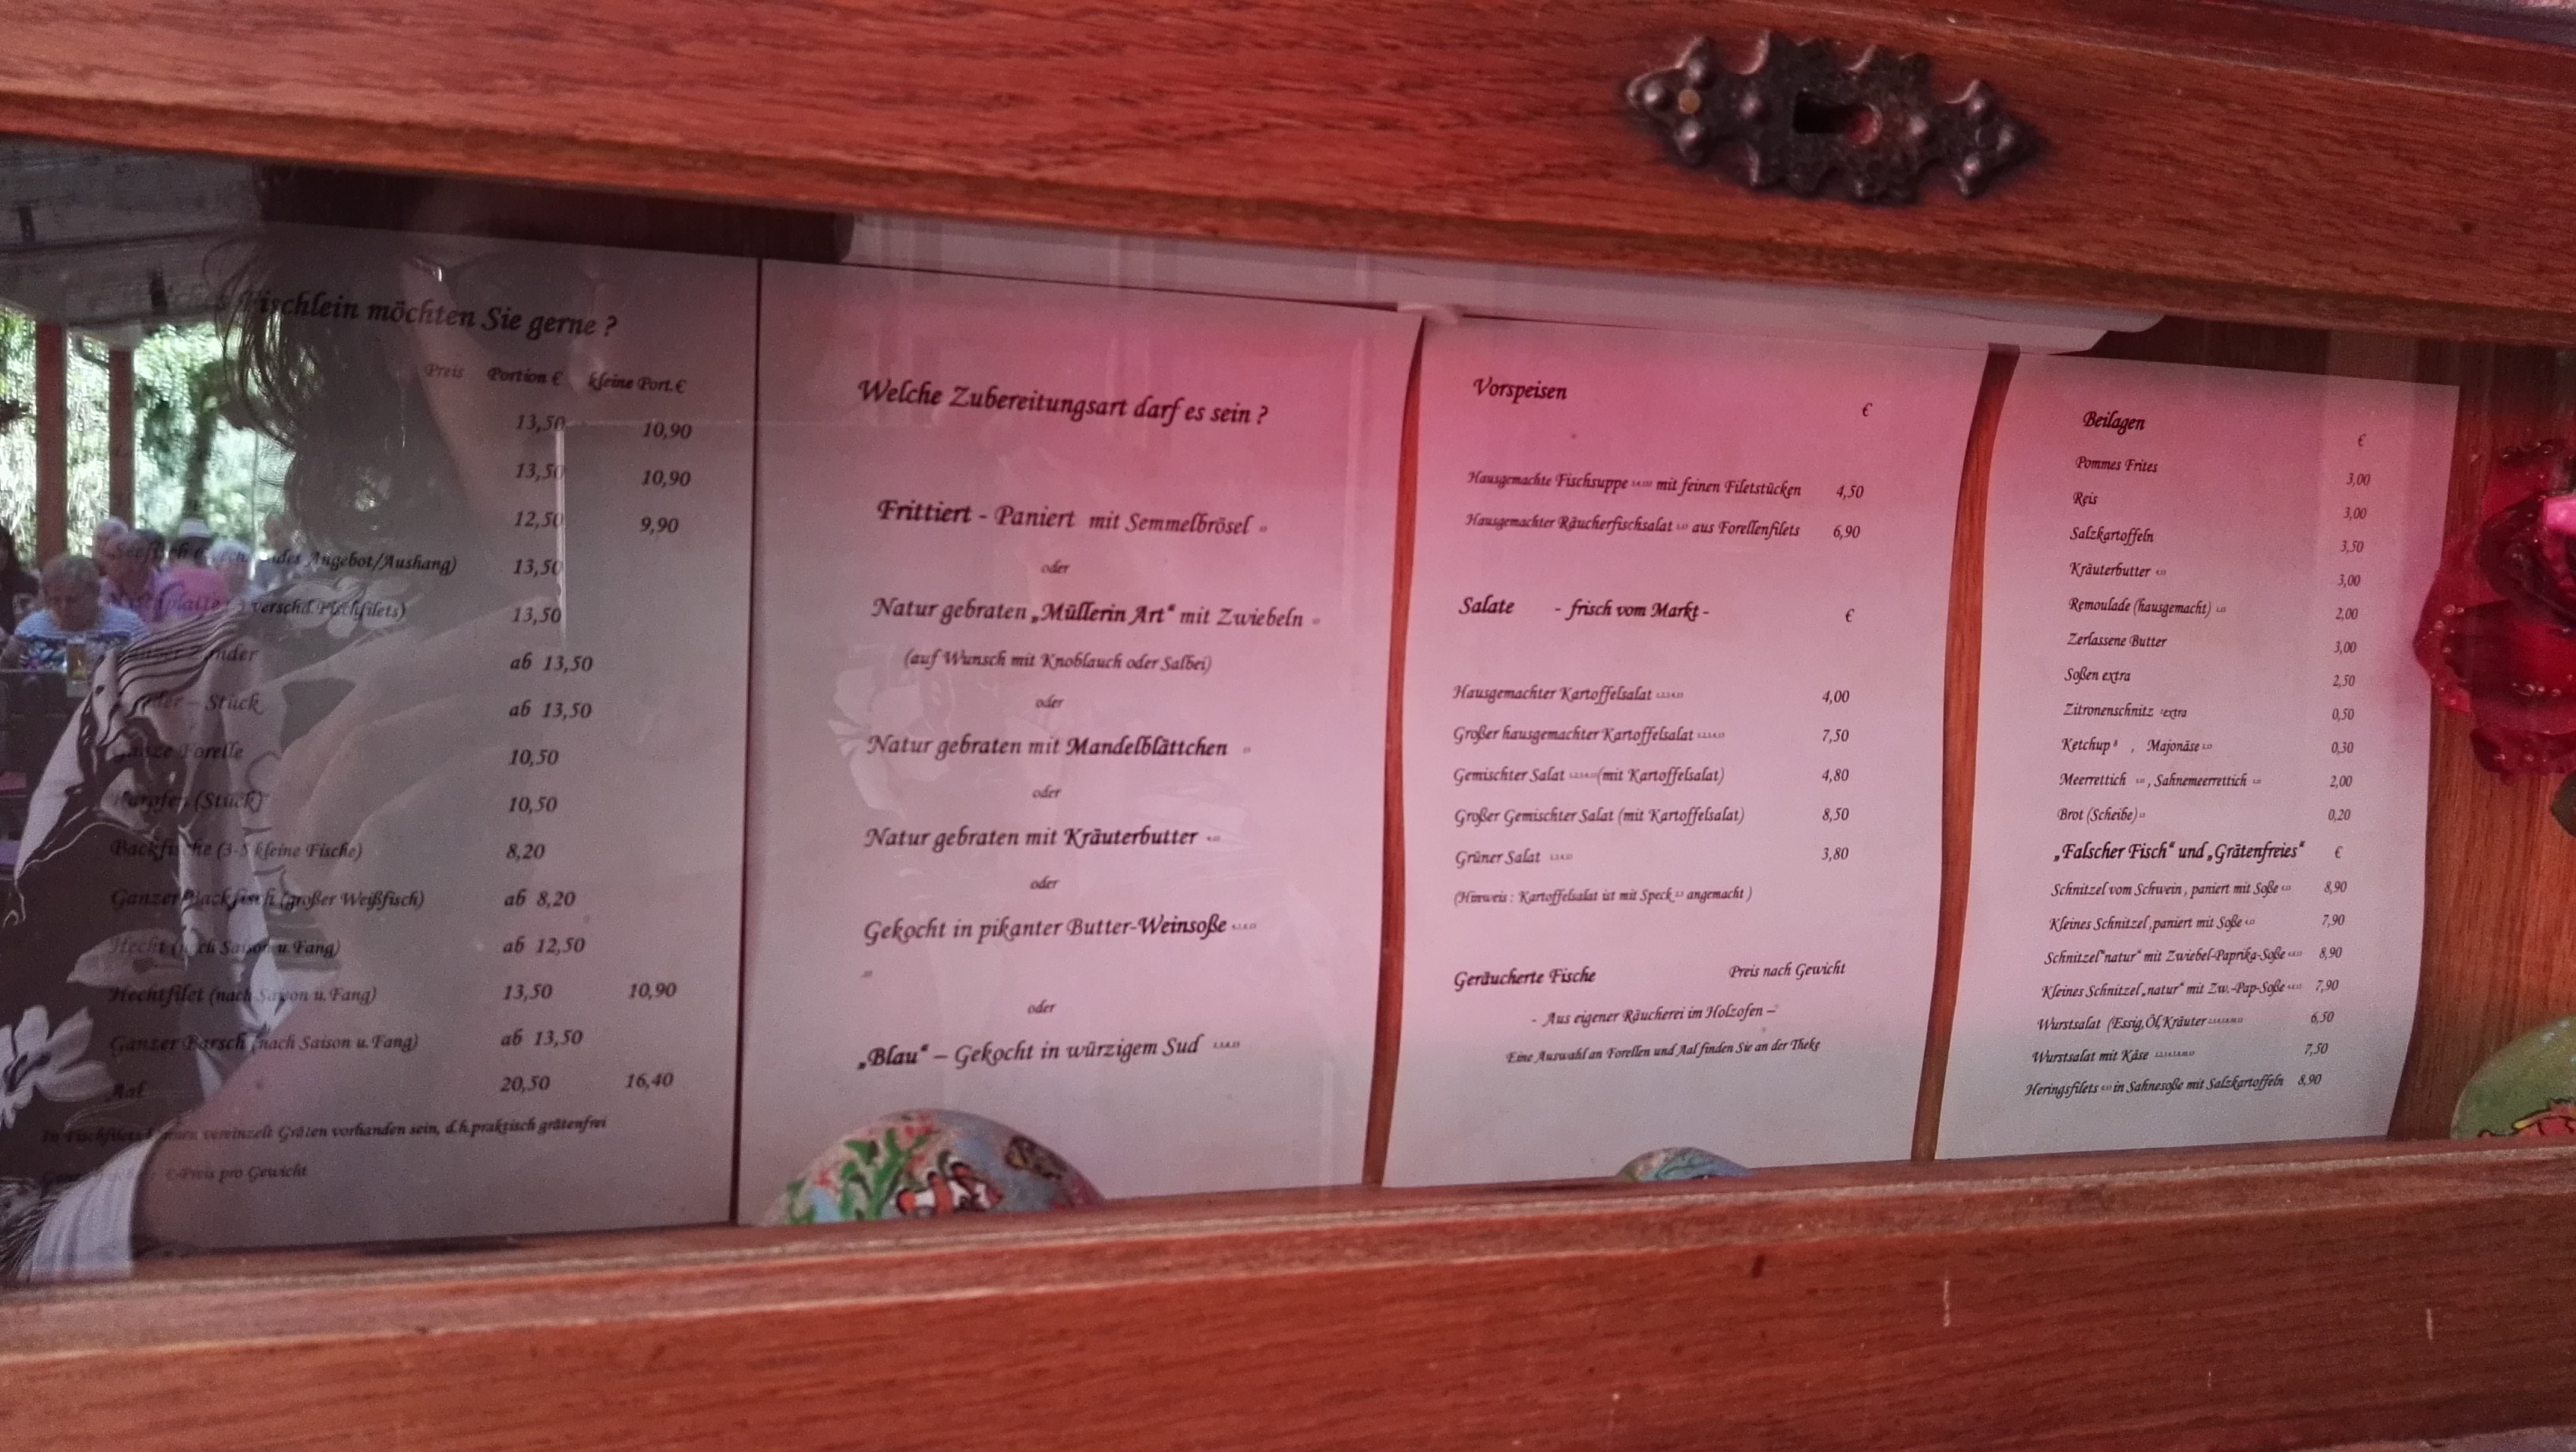 Fischlein möchten Sie gerne ?
Preis Portion € kleine Port.€
13,50 10,90
13,50 10,90
12,50 9,90
Angebot/Aushang) 13,50
verschd. Fischfilets) 13,50
ab 13,50
– Stück ab 13,50
Ganze Forelle 10,50
Karpfen (Stück) 10,50
Backfische (3-5 kleine Fische) 8,20
Ganzer Backfisch (großer Weißfisch) ab 8,20
Hecht (nach Saison u. Fang) ab 12,50
Hechtfilet (nach Saison u. Fang) 13,50 10,90
Ganzer Barsch (nach Saison u. Fang) ab 13,50
Aal 20,50 16,40
In Fischfilets vereinzelt Gräten vorhanden sein, d.h.praktisch grätenfrei
€-Preis pro Gewicht
Welche Zubereitungsart darf es sein ?
Frittiert - Paniert mit Semmelbrösel
oder
Natur gebraten „Müllerin Art“ mit Zwiebeln
(auf Wunsch mit Knoblauch oder Salbei)
oder
Natur gebraten mit Mandelblättchen
oder
Natur gebraten mit Kräuterbutter
oder
Gekocht in pikanter Butter-Weinsoße
oder
„Blau“ – Gekocht in würzigem Sud
Vorspeisen €
Hausgemachte Fischsuppe mit feinen Filetstücken 4,50
Hausgemachter Räucherfischsalat aus Forellenfilets 6,90
Salate - frisch vom Markt - €
Hausgemachter Kartoffelsalat 4,00
Großer hausgemachter Kartoffelsalat 7,50
Gemischter Salat (mit Kartoffelsalat) 4,80
Großer Gemischter Salat (mit Kartoffelsalat) 8,50
Grüner Salat 3,80
(Hinweis : Kartoffelsalat ist mit Speck angemacht )
Geräucherte Fische Preis nach Gewicht
- Aus eigener Räucherei im Holzofen –
Eine Auswahl an Forellen und Aal finden Sie an der Theke
Beilagen €
Pommes Frites 3,00
Reis 3,00
Salzkartoffeln 3,50
Kräuterbutter 3,00
Remoulade (hausgemacht) 2,00
Zerlassene Butter 3,00
Soßen extra 2,50
Zitronenschnitz extra 0,50
Ketchup , Majonäse 0,30
Meerrettich , Sahnemeerrettich 2,00
Brot (Scheibe) 0,20
„Falscher Fisch“ und „Grätenfreies“ €
Schnitzel vom Schwein , paniert mit Soße 8,90
Kleines Schnitzel ,paniert mit Soße 7,90
Schnitzel“natur“ mit Zwiebel-Paprika-Soße 8,90
Kleines Schnitzel „natur“ mit Zw.-Pap-Soße 7,90
Wurstsalat (Essig,Öl,Kräuter 6,50
Wurstsalat mit Käse 7,50
Heringsfilets in Sahnesoße mit Salzkartoffeln 8,90